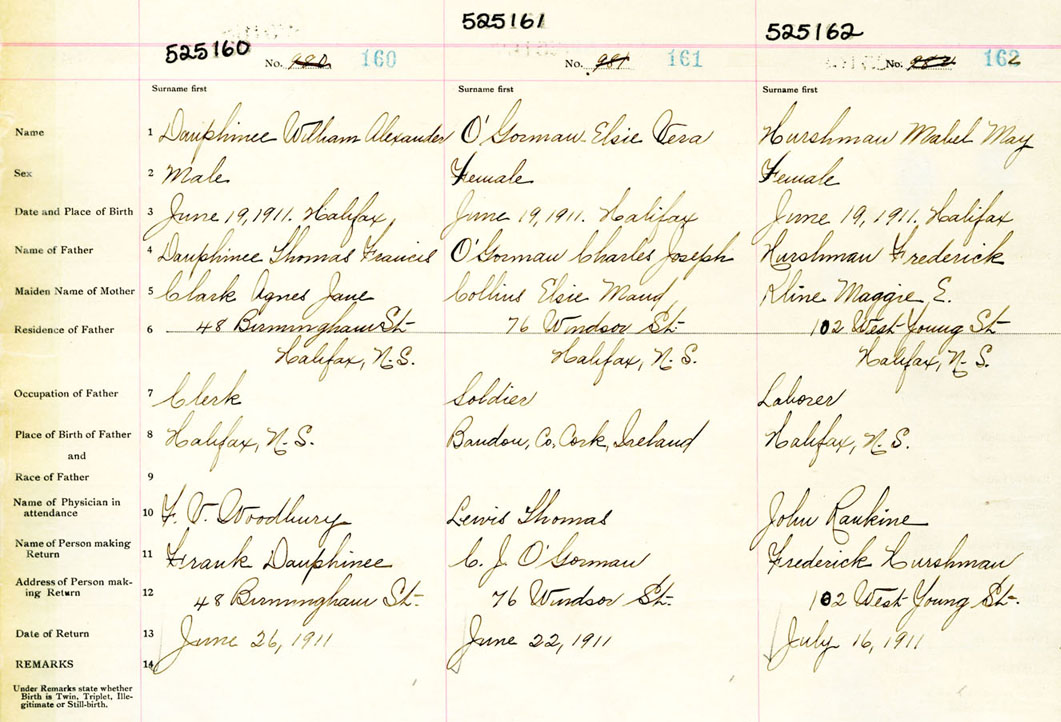 525160 525161 525162
No. 980 160 No. 981 161 No. 982 162
Surname first Surname first Surname first
Name 1 Dauphinee William Alexander O'Gorman Elsie Vera Hurshman Mabel May
Sex 2 Male Female Female
Date and Place of Birth 3 June 19, 1911. Halifax, June 19, 1911. Halifax June 19, 1911. Halifax
Name of Father 4 Dauphinee Thomas Francis O'Gorman Charles Joseph Hurshman Frederick
Maiden Name of Mother 5 Clark Agnes Jane Collins Elsie Maud Kline Maggie E.
Residence of Father 6 48 Birmingham St. 76 Windsor St. 102 West Young St.
Halifax, N.S. Halifax, N.S. Halifax, N.S.
Occupation of Father 7 Clerk Soldier Laborer
Place of Birth of Father 8 Halifax, N.S. Bandon, Co. Cork, Ireland Halifax, N.S.
and
Race of Father 9
Name of Physician in
attendance 10 F. V. Woodbury Lewis Thomas John Rankine
Name of Person making
Return 11 Frank Dauphinee C. J. O'Gorman Frederick Hurshman
Address of Person mak-
ing Return 12 48 Birmingham St. 76 Windsor St. 102 West Young St.
Date of Return 13 June 26, 1911 June 22, 1911 July 16, 1911
REMARKS 14
Under Remarks state whether
Birth is Twin, Triplet, Ille-
gitimate or Still-birth.